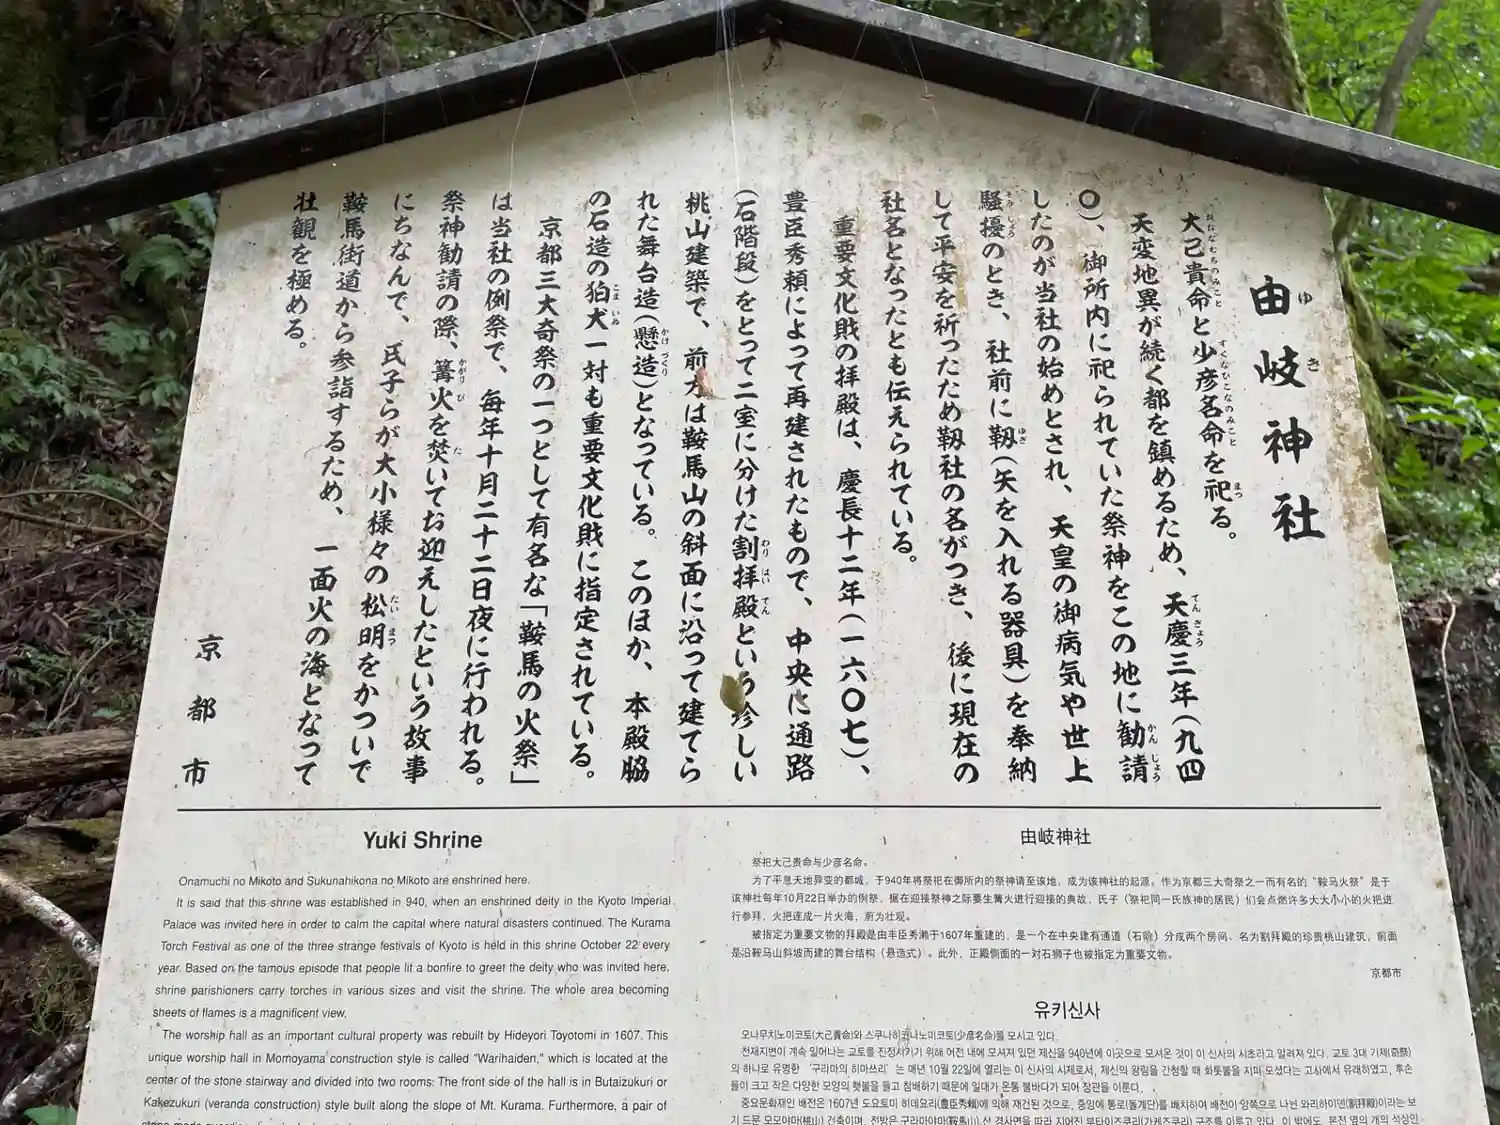 由岐神社
大己貴命と少彦名命を祀る。
天変地異が続く都を鎮めるため、天慶三年(九四
〇)、御所内に祀られていた祭神をこの地に勧請
したのが当社の始めとされ、天皇の御病気や世上
騒擾のとき、社前に靱(矢を入れる器具)を奉納
して平安を祈ったため靱社の名がつき、後に現在の
社名となったとも伝えられている。
重要文化財の拝殿は、慶長十二年(一六〇七)、
豊臣秀頼によって再建されたもので、中央に通路
(石階段)をとって二室に分けた割拝殿という珍しい
桃山建築で、前方は鞍馬山の斜面に沿って建てら
れた舞台造(懸造)となっている。このほか、本殿脇
の石造の狛犬一対も重要文化財に指定されている。
京都三大奇祭の一つとして有名な「鞍馬の火祭」
は当社の例祭で、毎年十月二十二日夜に行われる。
祭神勧請の際、篝火を焚いてお迎えしたという故事
にちなんで、氏子らが大小様々の松明をかついで
鞍馬街道から参詣するため、一面火の海となって
壮観を極める。
京都市
Yuki Shrine
Onamuchi no Mikoto and Sukunahikona no Mikoto are enshrined here.
It is said that this shrine was established in 940, when an enshrined deity in the Kyoto Imperial
Palace was invited here in order to calm the capital where natural disasters continued. The Kurama
Torch Festival as one of the three strange festivals of Kyoto is held in this shrine October 22 every
year. Based on the famous episode that people lit a bonfire to greet the deity who was invited here,
shrine parishioners carry torches in various sizes and visit the shrine. The whole area becoming
sheets of flames is a magnificent view.
The worship hall as an important cultural property was rebuilt by Hideyori Toyotomi in 1607. This
unique worship hall in Momoyama construction style is called "Warihaiden," which is located at the
center of the stone stairway and divided into two rooms: The front side of the hall is in Butaizukuri or
Kakezukuri (veranda construction) style built along the slope of Mt. Kurama. Furthermore, a pair of
由岐神社
祭祀大己贵命与少彦名命。
为了平息天地异变的都城，于940年将祭祀在御所内的祭神请至该地，成为该神社的起源。作为京都三大奇祭之一而有名的"鞍马火祭"是于
该神社每年10月22日举办的例祭，据在迎接祭神之际要生篝火进行迎接的典故，氏子（祭祀同一氏族神的居民）们会点燃许多大大小小的火把进
行参拜，火把连成一片火海，蔚为壮观。
被指定为重要文物的拜殿是由丰臣秀赖于1607年重建的，是一个在中央建有通道（石阶）分成两个房间、名为割拜殿的珍贵桃山建筑，前面
是沿鞍马山斜坡而建的舞台结构（悬造式）。此外，正殿侧面的一对石狮子也被指定为重要文物。
京都市
유키신사
오나무치노미코토(大己貴命)와 스쿠나히코나노미코토(少彦名命)를 모시고 있다.
천재지변이 계속 일어나는 교토를 진정시키기 위해 어전 내에 모셔져 있던 제신을 940년에 이곳으로 모셔온 것이 이 신사의 시초라고 알려져 있다. 교토 3대 기제(奇祭)
의 하나로 유명한 '구라마의 히마쓰리'는 매년 10월 22일에 열리는 이 신사의 시제로서, 제신의 왕림을 간청할 때 화톳불을 지펴 모셨다는 고사에서 유래하였고, 후손
들이 크고 작은 다양한 모양의 횃불을 들고 참배하기 때문에 일대가 온통 불바다가 되어 장관을 이룬다.
중요문화재인 배전은 1607년 도요토미 히데요리(豊臣秀頼)에 의해 재건된 것으로, 중앙에 통로(돌계단)를 배치하여 배전이 양쪽으로 나뉜 와리하이덴(割拝殿)이라는 보